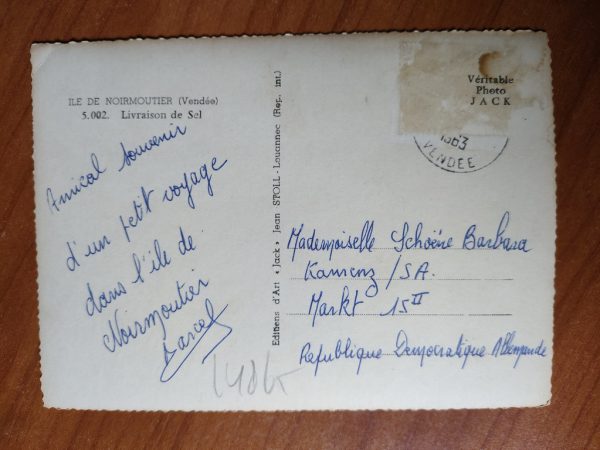 ILE DE NOIRMOUTIER (Vendée)
5.002. Livraison de Sel
Amical souvenir
d'un petit voyage
dans l'île de
Noirmoutier
Editions d'Art « Jack » Jean STOLL - Louannec (Rep. int.)
Véritable
Photo
JACK
1963
VENDEE
Mademoiselle Schöëne Barbara
Kamenz /SA.
Markt 15 II
Republique Democratique Allemande